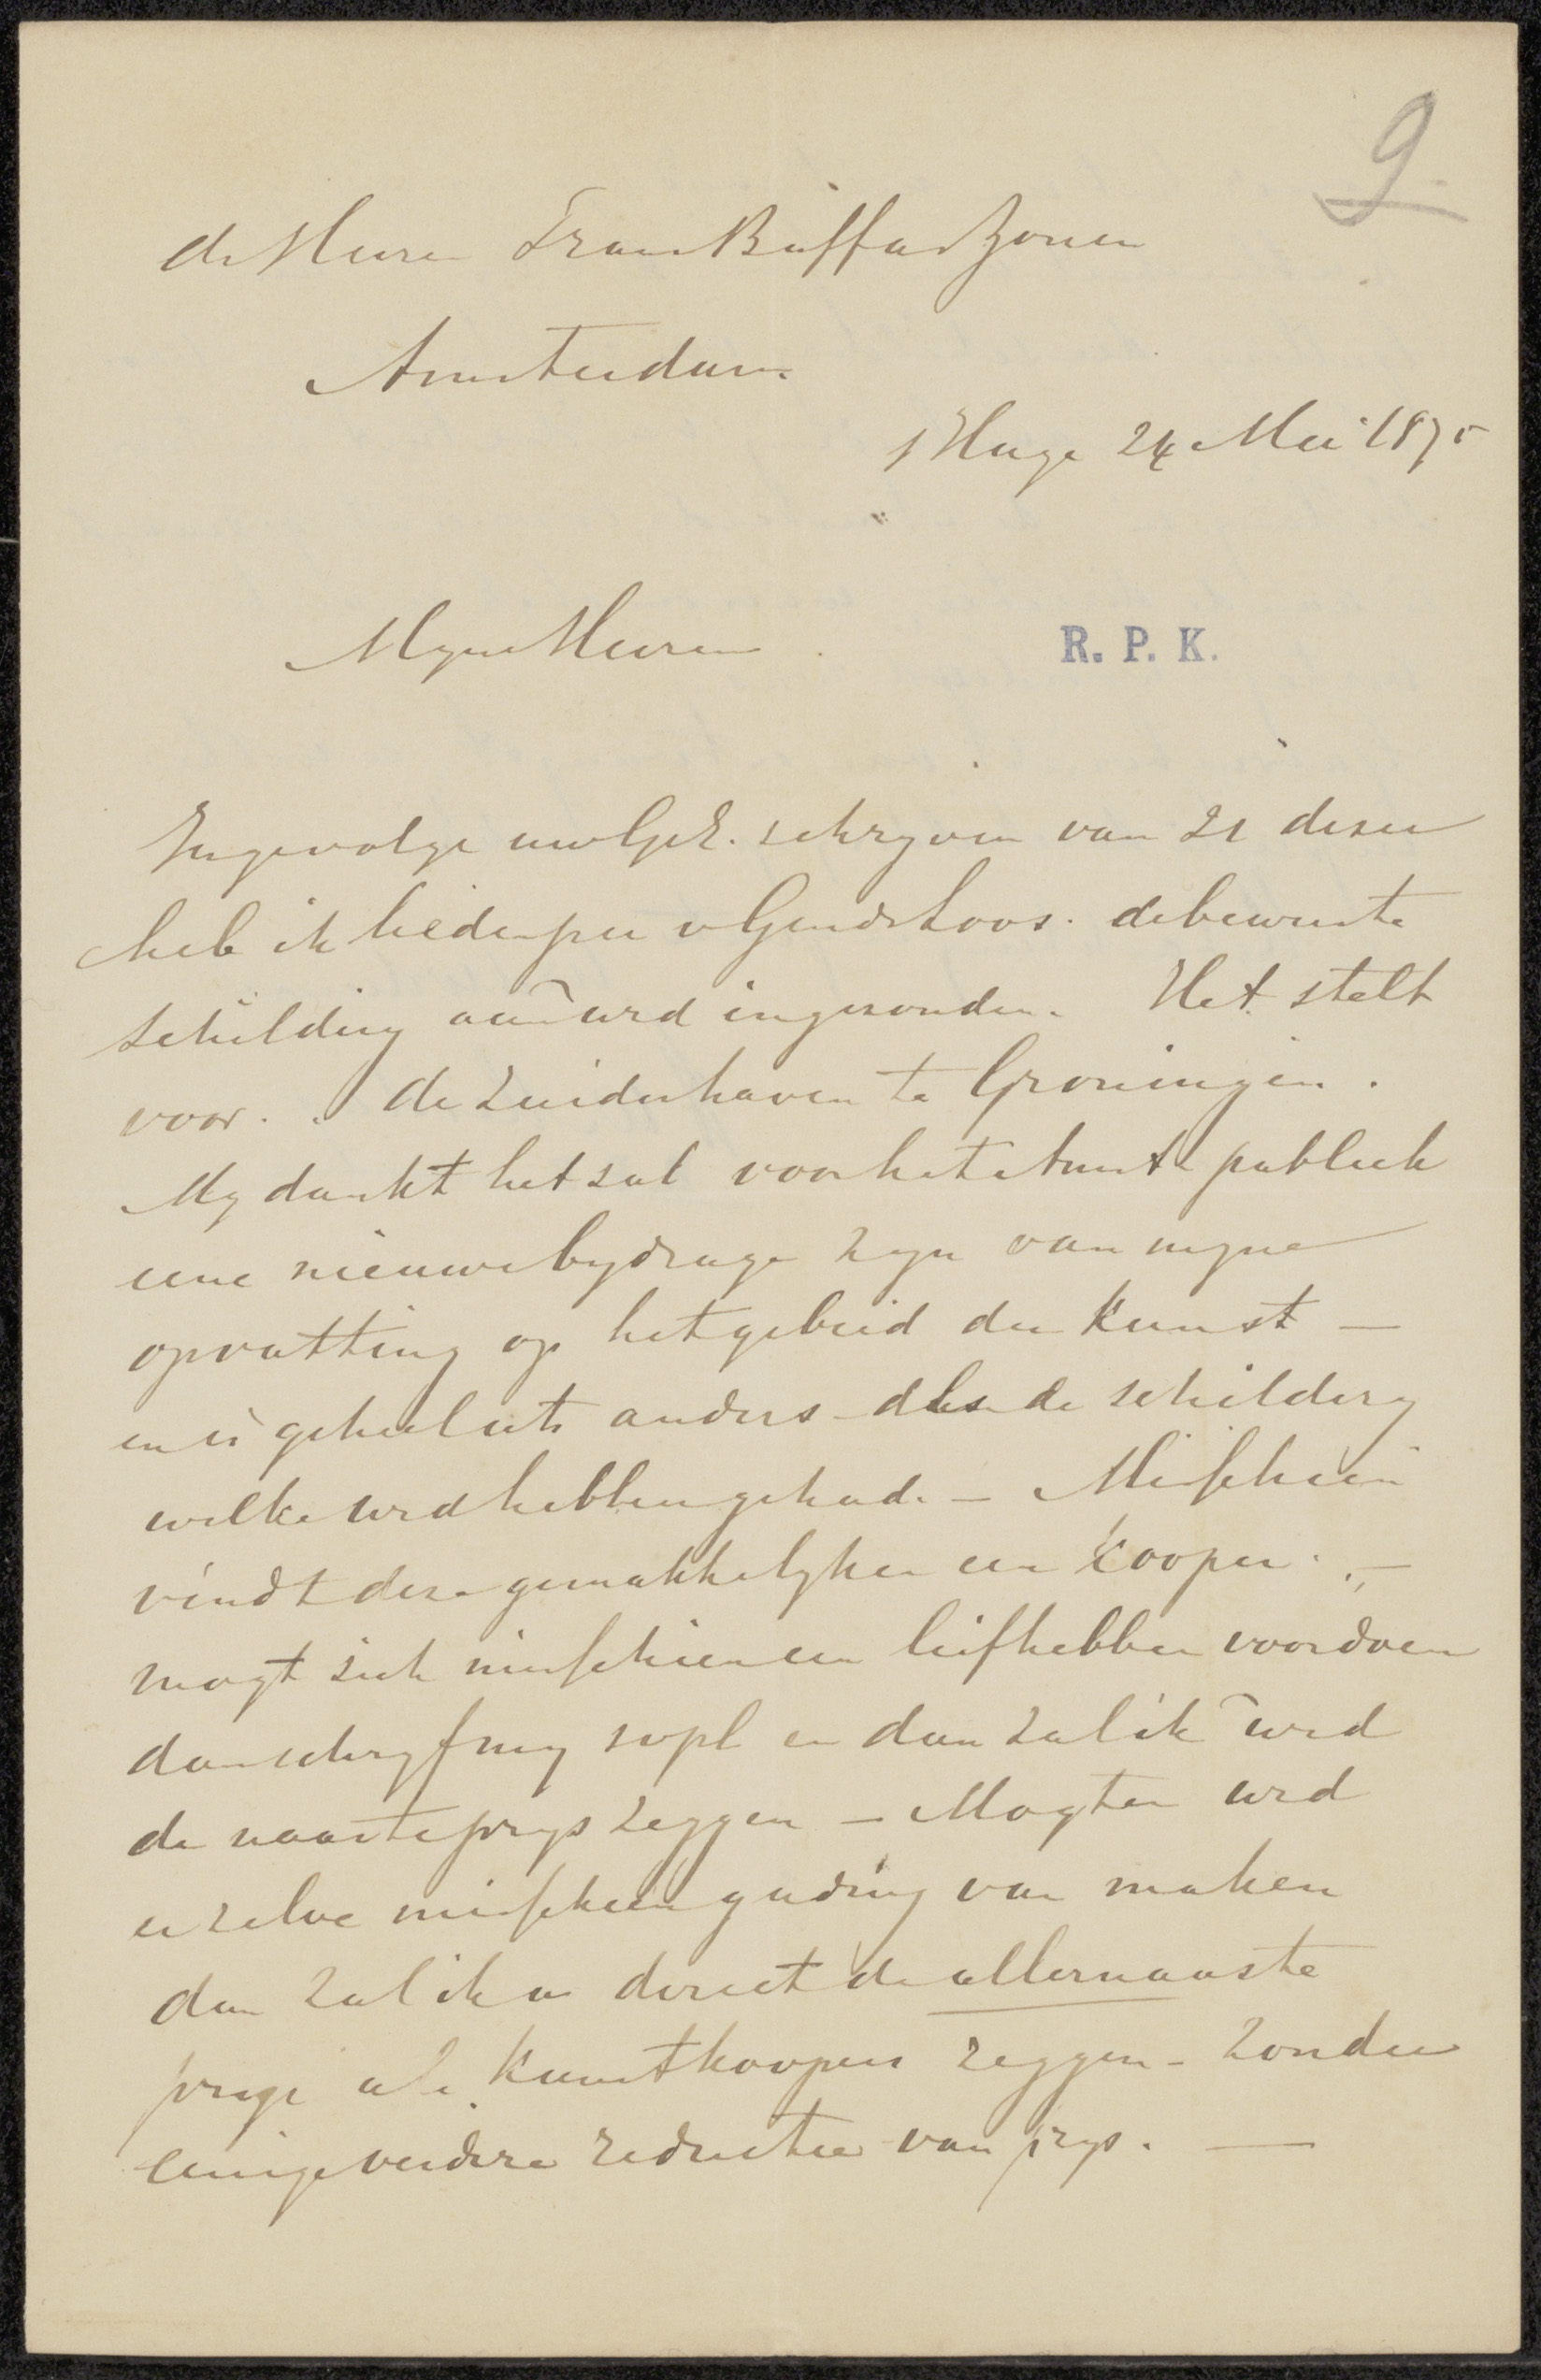 9
de Heeren Frans Buffa & Zonen
Amsterdam
s Hage 24 Mei 1875
Myne Heeren
R. P. K.
Ingevolge uwlgeE. schryven van 21 dezer
heb ik heden per v Gend & Loos. de bewuste
schildery aan ued ingezonden. Het stelt
voor. de Zuiderhaven te Groningen.
My dunkt het zal voor het kunst publiek
eene nieuwe bydrage zyn van myne
opvatting op het gebied der kunst —
en is geheel iets anders dan de schildery
welke ued hebben gehad. — Misschien
vindt deze gemakkelyker een kooper. —
mogt zich misschien een liefhebber voordoen
dan schryf my svpl en dan zal ik ued
de naaste prys zeggen — Mogten ued
er zelve misschien gading van maken
dan zal ik u direct de allernaaste
prys als kunstkooper zeggen - zonder
eenige verdere reductie van prys. —